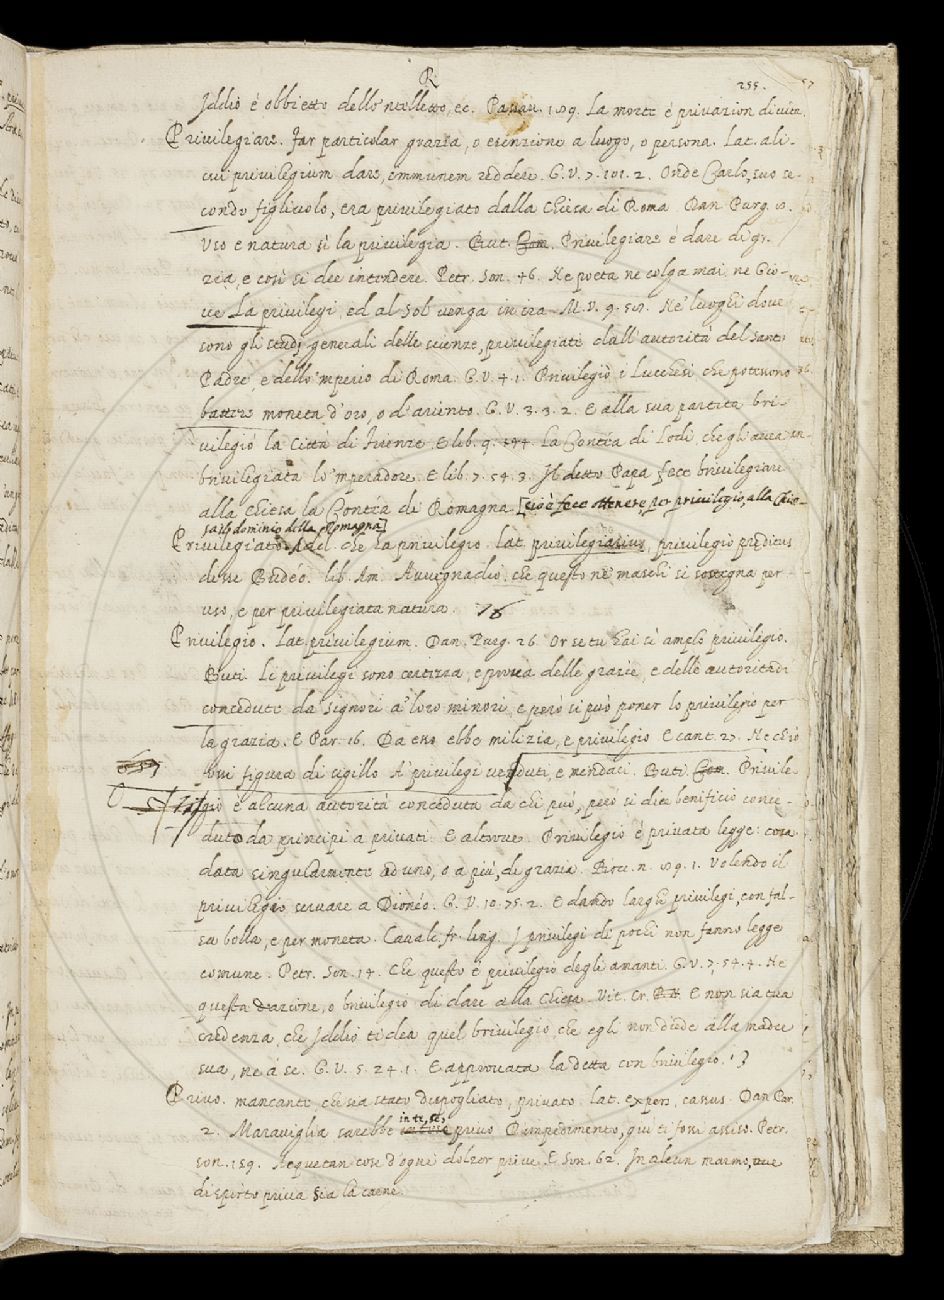 R 255. 57
Iddio è obbietto dello 'ntelletto, ec. Passau. 189. La morte è privazion di vita.
Privilegiare. Far particolar grazia, o esenzione a luogo, o persona. Lat. ali-
cui privilegium dare, immunem reddere. G. V. 7. 101. 2. Onde Carlo, suo se-
condo figliuolo, era privilegiato dalla Chiesa di Roma. Dan Purg. 8.
Uso e natura sì la privilegia. But. Com. Privilegiare è dare di g
zia, e così si dee intendere. Petr. Son. 46. Ne poeta ne colga mai, ne Gio-
ve La privilegi, ed al Sol venga in ira. M. V. 9. Ne' luoghi dove
sono gli studj generali delle scienze, privilegiati dall'autorità del Santo
Padre, e dello 'mperio di Roma. G. V. 4. 1. Privilegiò i Lucchesi che potessono
battere moneta d'oro, o d'ariento. G. V. 3. 3. 2. E alla sua partita bri-
vilegiò la Città di Firenze. E lib. 9. La Contéa di Lodi, che gli avea in-
brivilegiata lo 'mperadore. E lib. 7. 54. 3. Il detto Papa fece brivilegiare
alla Chiesa la Contéa di Romagna [cioè fece ottenere, per privilegio, alla Chie-
sa il dominio della Romagna]
Privilegiato. Add. che ha privilegio. lat. privilegiarius, privilegio preditus
disse Budéo. lib. Am. Avvegnadio, che questo ne' maschi si sostegna per
uso, e per privilegiata natura.
Privilegio. Lat. privilegium. Dan. Purg. 26. Or se tu hai sì amplo privilegio.
Buti. Li privilegi sono certezza, e prova delle grazie, e delle autoritadi
concedute da Signori a' loro minori, e però si può poner lo privilegio per
la grazia. E Par. 16. Da esso ebbe milizia, e privilegio. E cant. 27. Ne ch'io
fossi figura di sigillo A' privilegi venduti, e mendaci. Buti. Com. Privile-
gio è alcuna autorità conceduta da chi può, però si dice benificio conce-
duto da principi a privati. E altrove. Privilegio è privata legge: cosa
data singularmente ad uno, o a più, di grazia. Bocc. n. 89. 1. Volendo il
privilegio servare a Dionéo. G. V. 10. 75. 2. E dando larghi privilegi, con fal-
sa bolla, e per moneta. Cavalc. fr. ling. I privilegi di pochi non fanno legge
comune. Petr. Son. 14. Che questo è privilegio degli amanti. G. V. 7. 54. 4. Ne
questa dazione, o brivilegio di dare alla Chiesa. Vit. Cr. E non sia tua
credenza, che Iddio ti dea quel brivilegio, che egli non diede alla madre
sua, ne a se. G. V. 5. 24. 1. E approvata la detta con brivilegio.
Privo. mancante che sia stato dispogliato, privato. lat. expers, cassus. Dan Par.
2. Maraviglia sarebbe in te, se, privo D'impedimento, giù ti fossi assiso. Petr.
son. 159. Acquetan cose d'ogni dolzor prive. E Son. 62. In alcun marmo, ove
di spirto priva Sia la carne.